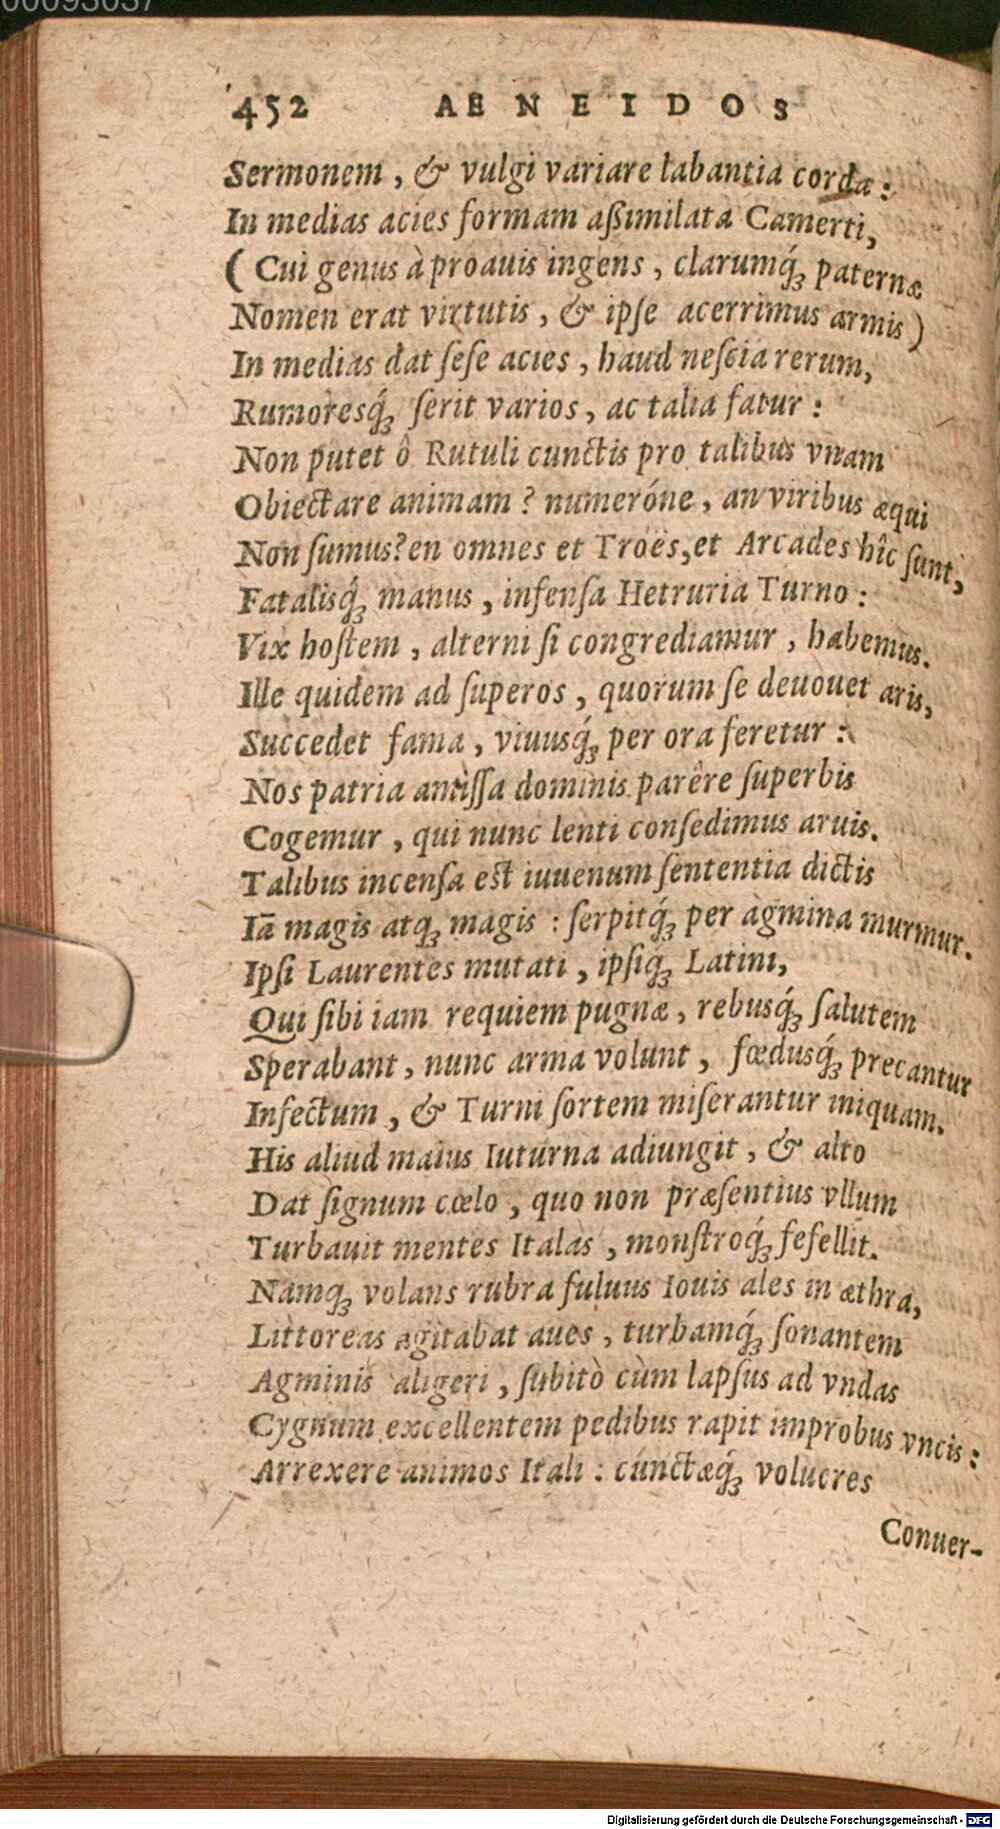 00093037
452 AENEIDOS
Sermonem, & vulgi variare labantia corda:
In medias acies formam aßimilata Camerti,
(Cui genus à proauis ingens, clarumq́ꝫ paternæ
Nomen erat virtutis, & ipſe acerrimus armis)
In medias dat ſeſe acies, haud neſcia rerum,
Rumoresq́ꝫ ſerit varios, ac talia fatur:
Non putet ô Rutuli cunctis pro talibus vnam
Obiectare animam? numeróne, an viribus æqui
Non ſumus? en omnes et Troës, et Arcades hîc ſunt,
Fatalisq́ꝫ manus, infenſa Hetruria Turno:
Vix hoſtem, alterni ſi congrediamur, habemus.
Ille quidem ad ſuperos, quorum ſe deuouet aris,
Succedet fama, viuusq́ꝫ per ora feretur:
Nos patria amiſſa dominis parêre ſuperbis
Cogemur, qui nunc lenti conſedimus aruis.
Talibus incenſa eſt iuuenum ſententia dictis
Iā magis atqꝫ magis: ſerpitq́ꝫ per agmina murmur.
Ipſi Laurentes mutati, ipſiq́ꝫ Latini,
Qui ſibi iam requiem pugnæ, rebusq́ꝫ ſalutem
Sperabant, nunc arma volunt, fœdusq́ꝫ precantur
Infectum, & Turni ſortem miſerantur iniquam.
His aliud maius Iuturna adiungit, & alto
Dat ſignum cœlo, quo non præſentius vllum
Turbauit mentes Italas, monſtroq́ꝫ fefellit.
Namqꝫ volans rubra fuluus Iouis ales in æthra,
Littoreas agitabat aues, turbamq́ꝫ ſonantem
Agminis aligeri, ſubitò cùm lapſus ad vndas
Cygnum excellentem pedibus rapit improbus vncis:
Arrexere animos Itali: cunctæq́ꝫ volucres
Conuer-
Digitalisierung gefördert durch die Deutsche Forschungsgemeinschaft - DFG